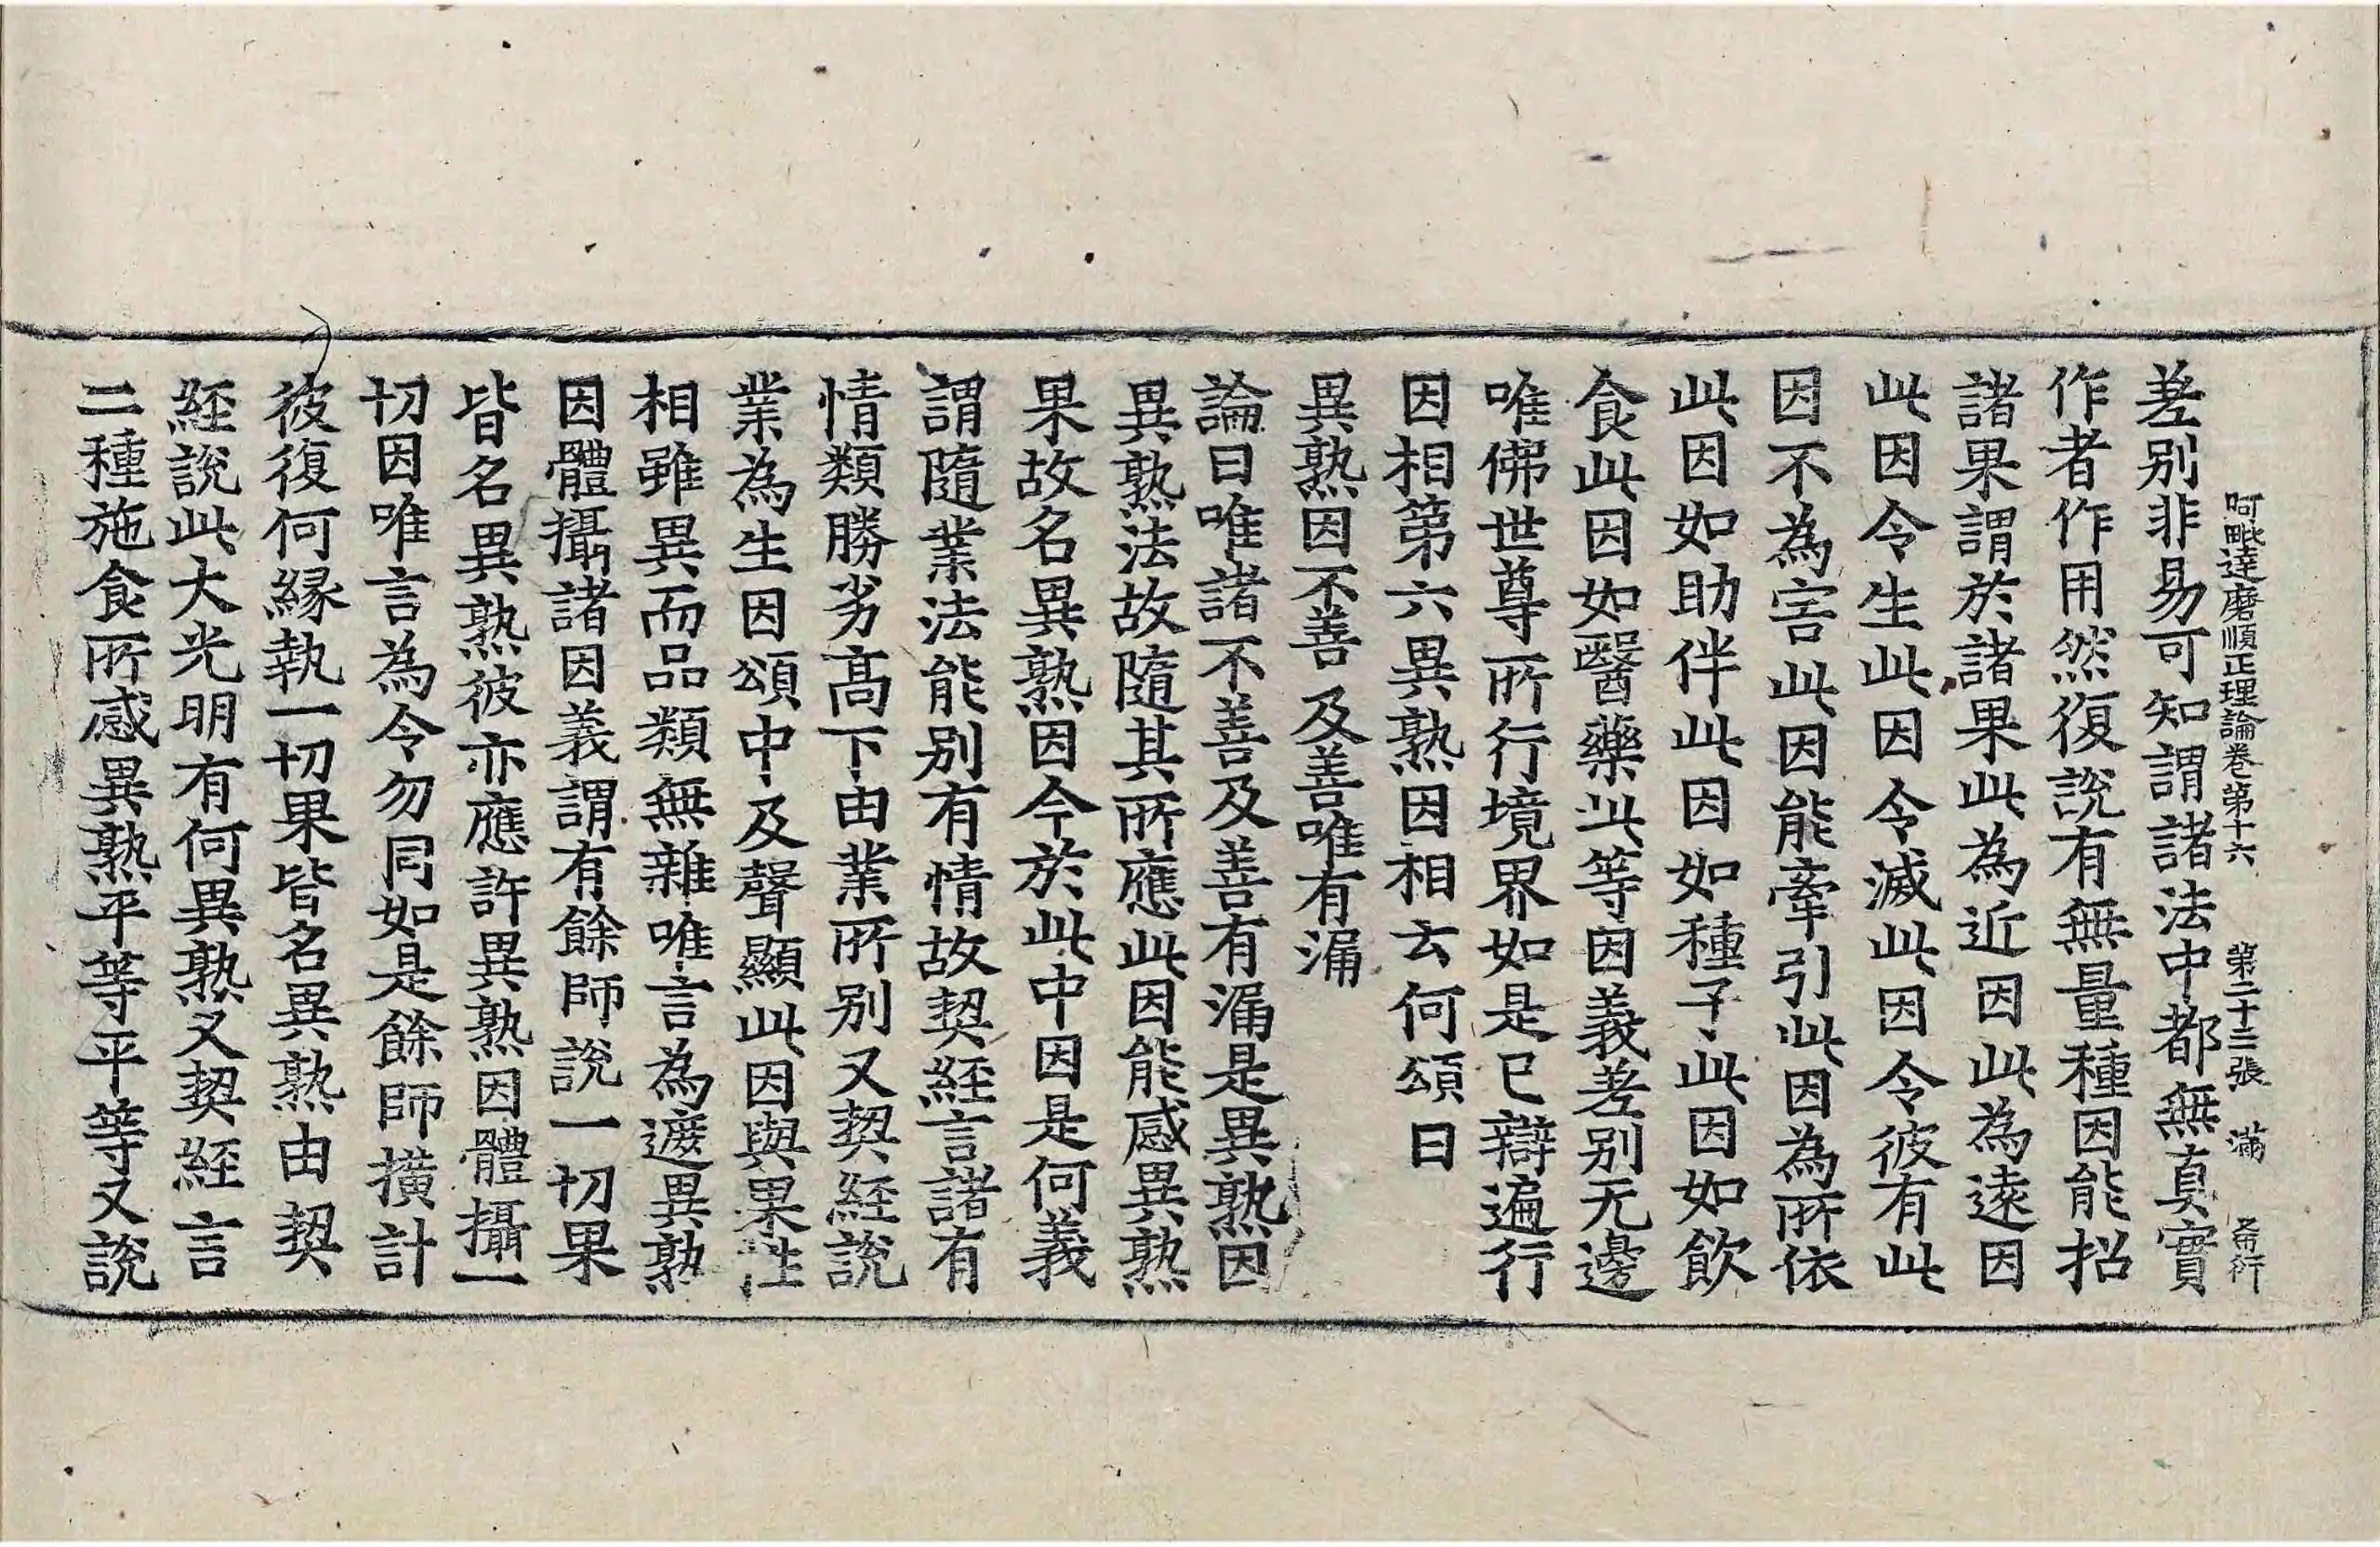 阿毗達磨順正理論卷第十六 第二十三張 滿
差別非易可知謂諸法中都無真實
作者作用然復說有無量種因能招
諸果謂於諸果此為近因此為遠因
此因令生此因令滅此因令彼有此
因不為害此因能牽引此因為所依
此因如助伴此因如種子此因如飲
食此因如醫藥此等因義差別无邊
唯佛世尊所行境界如是已辯遍行
因相第六異熟因相云何頌曰
異熟因不善 及善唯有漏
論曰唯諸不善及善有漏是異熟因
異熟法故隨其所應此因能感異熟
果故名異熟因今於此中因是何義
謂隨業法能別有情故契經言諸有
情類勝劣高下由業所別又契經說
業為生因頌中及聲顯此因與果性
相雖異而品類無雜唯言為遮異熟
因體攝諸因義謂有餘師說一切果
皆名異熟彼亦應許異熟因體攝一
切因唯言為令勿同如是餘師撗計
彼復何緣執一切果皆名異熟由契
經說此大光明有何異熟又契經言
二種施食所感異熟平等平等又說